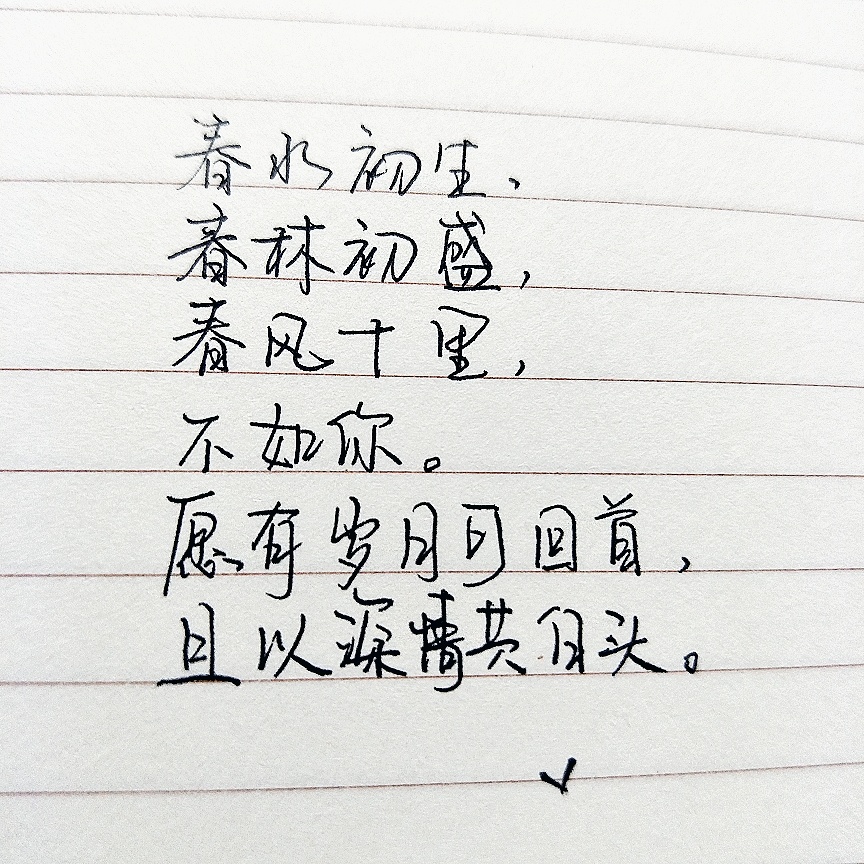 春水初生，
春林初盛，
春风十里，
不如你。
愿有岁月可回首，
且以深情共白头。